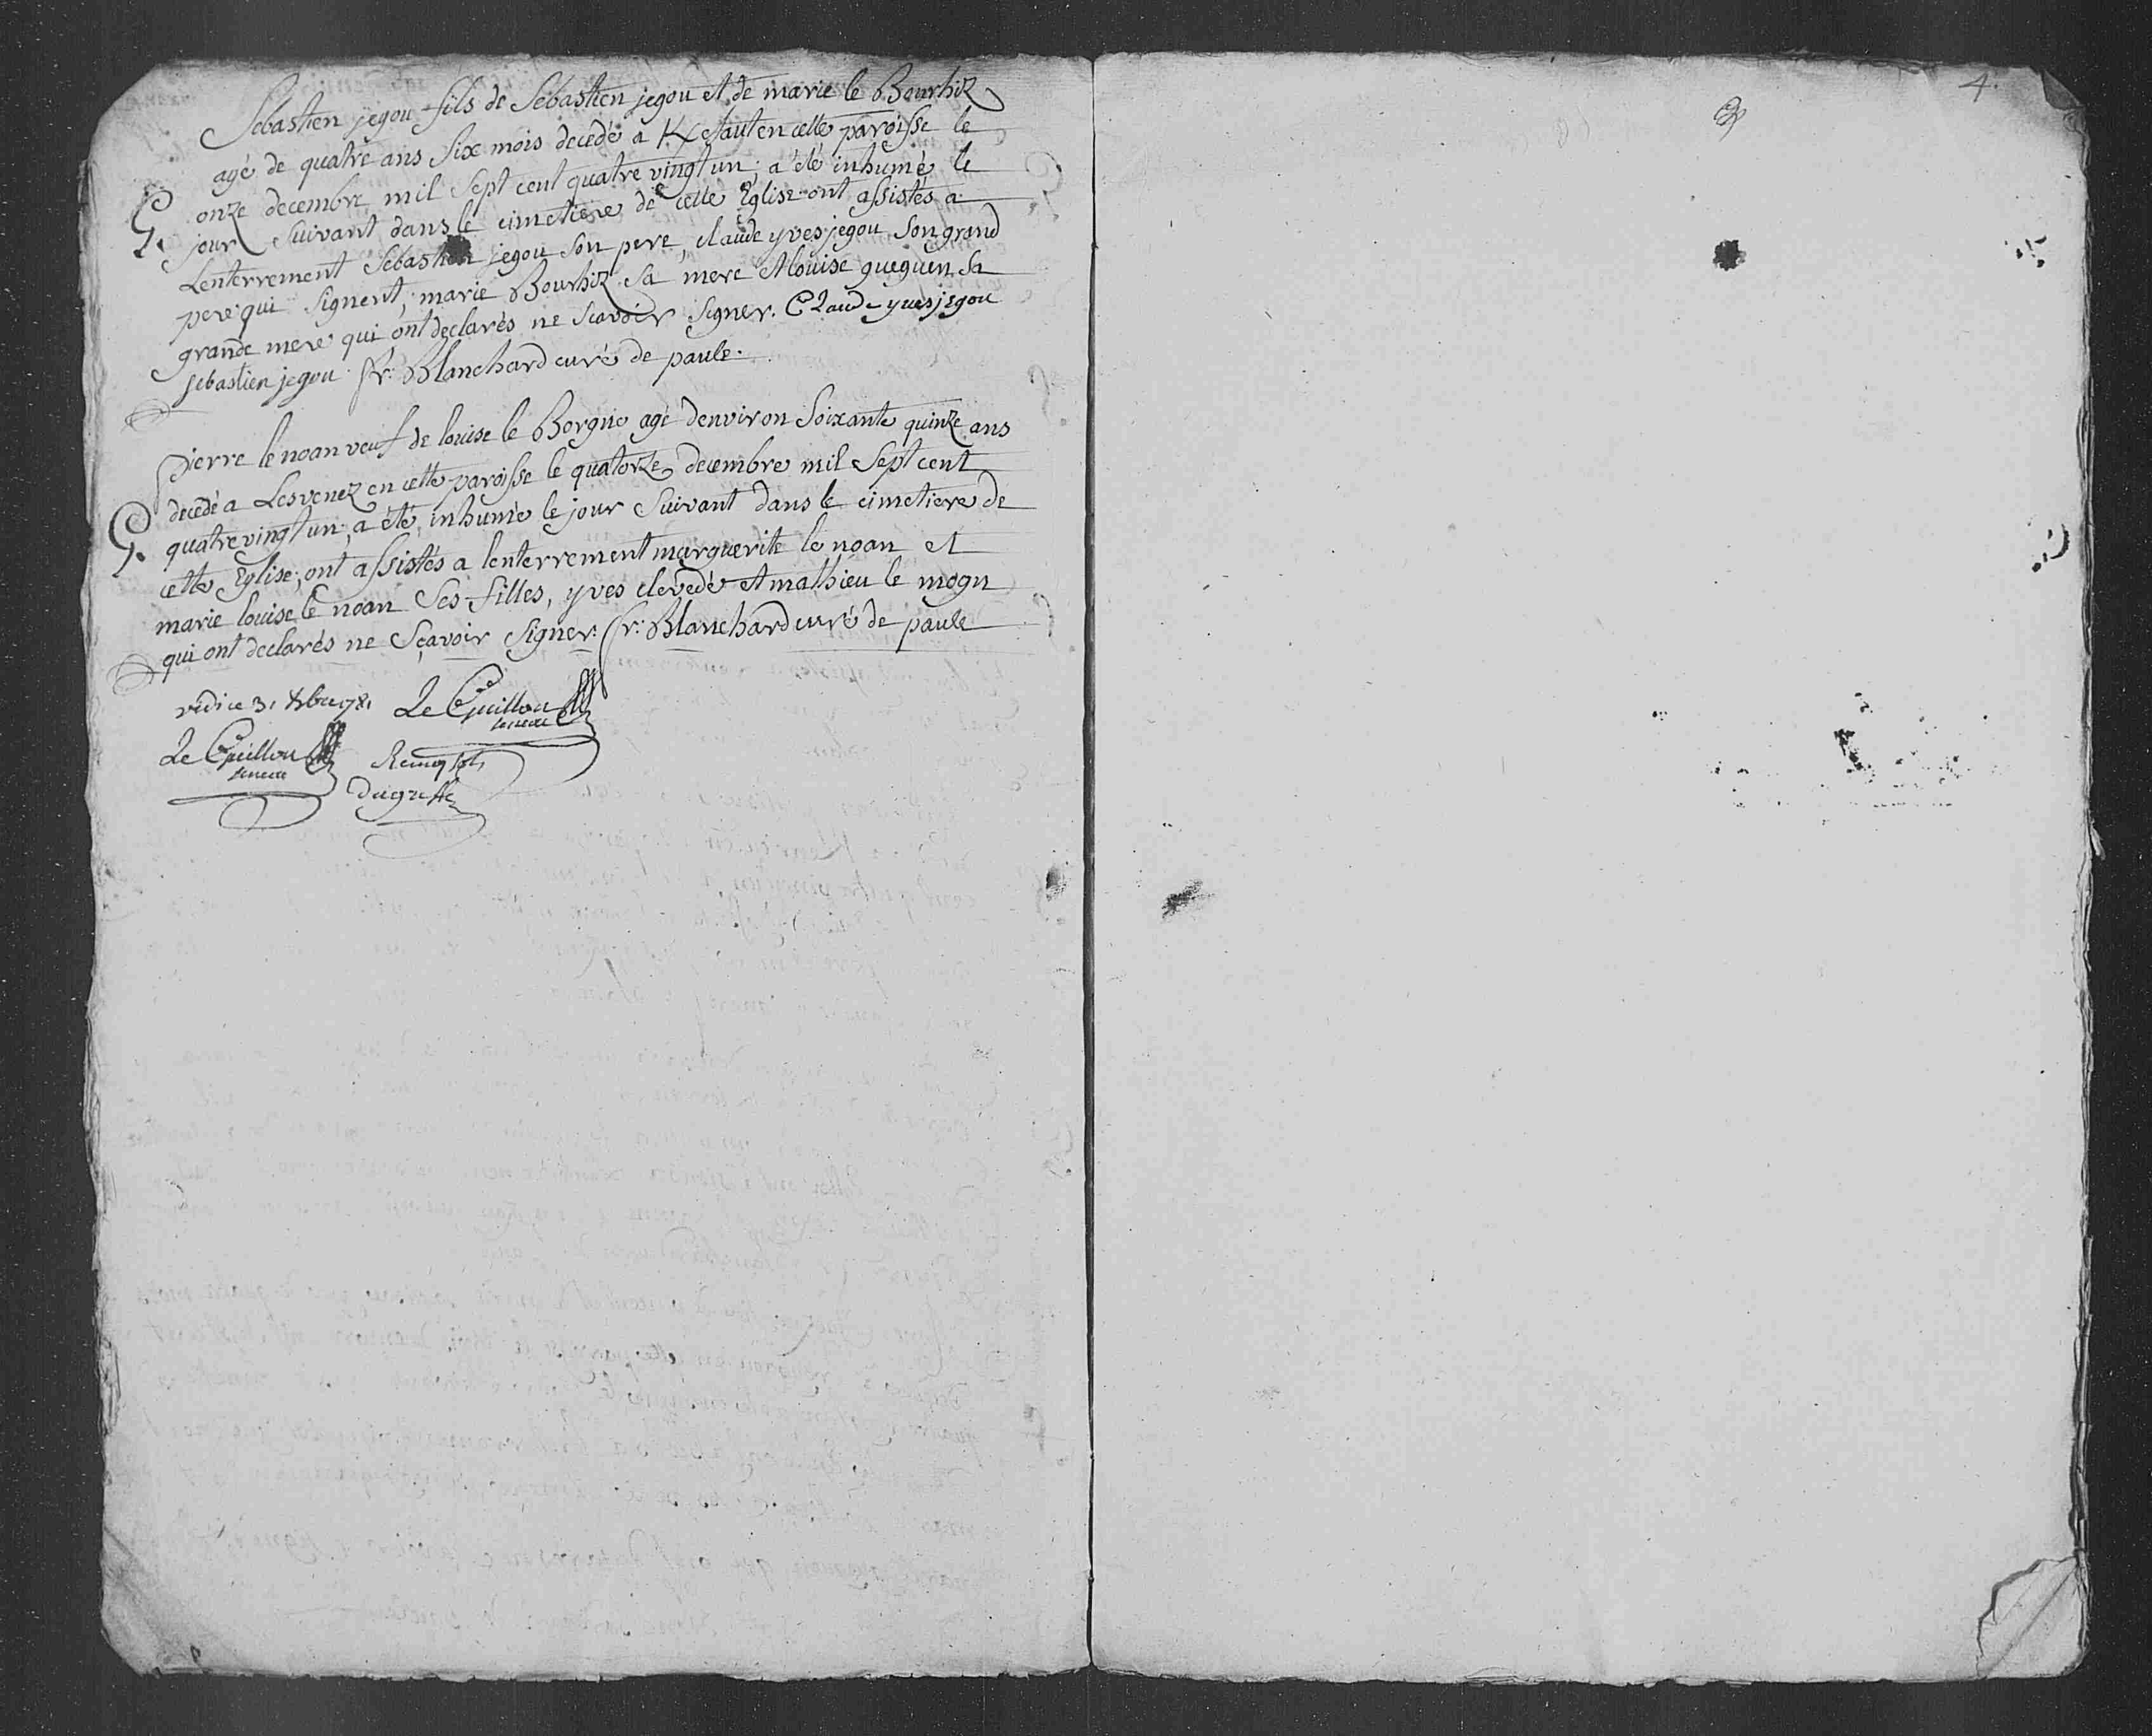 Sebastien jegou fils de Sebastien jegou et de marie le Bourhiz
agé de quatre ans six mois decedé a en cette paroisse le
G. onze decembre mil sept cent quatre vingt un, a été inhumé le
jour suivant dans le cimetiere de cette Eglise ont assistés a
Lenterrement Sebastien jegou son pere, claude yves jegou son grand
pere qui signent, marie Bourhiz sa mere et louise gueguen sa
grande mere qui ont declarés ne scavoir signer. Claude yves jegou
sebastien jegou fr: Blanchard curé de paule.
Pierre le noan veuf de louise le Borgne agé denviron soixante quinze ans
decedé a Lesvenez en cette paroisse le quatorze decembre mil sept cent
G. quatre vingt un, a été inhumé le jour suivant dans le cimetiere de
cette Eglise, ont assistés a lenterrement marguerite le noan et
marie louise le noan ses filles, yves clevedé et mathieu le mogn
qui ont declarés ne sçavoir signer. fr: Blanchard curé de paule
Le Guillou
Le Guillou
4.